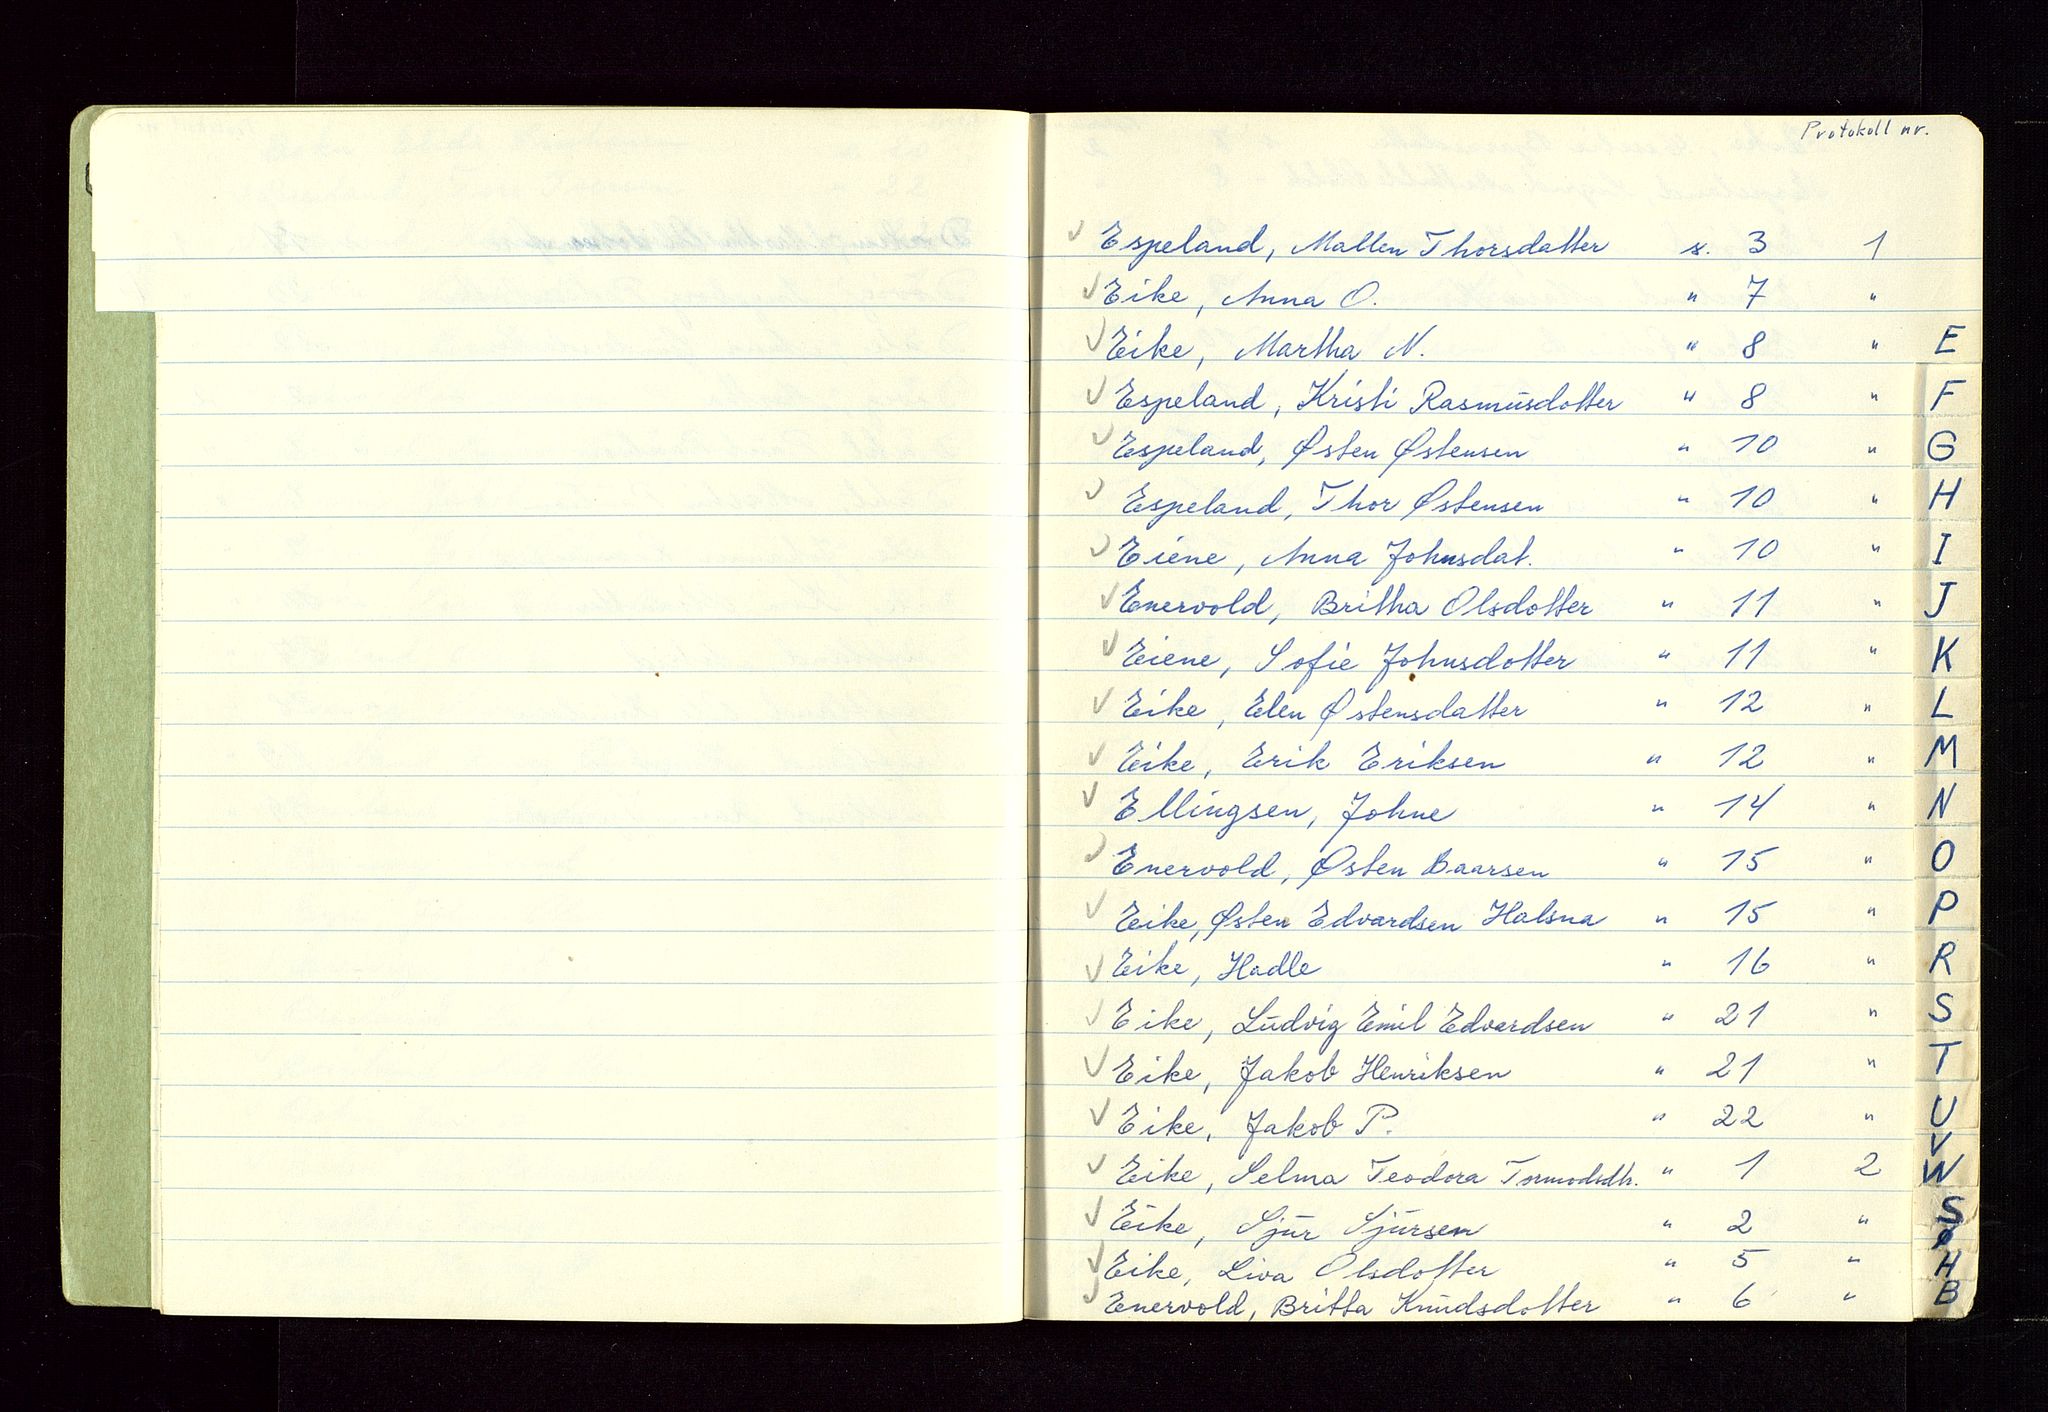 Protokoll nr.
Espeland, Mallen Thorsdatter s. 3 1
Eike, Anna O. " 7 "
Eike, Martha N. " 8 "
Espeland, Kristi Rasmusdotter " 8 "
Espeland, Østen Østensen " 10 "
Espeland, Thor Østensen " 10 "
Eiene, Anna Johnsdat. " 10 "
Enervold, Britha Olsdotter " 11 "
Eiene, Sofie Johnsdotter " 11 "
Eike, Elen Østensdatter " 12 "
Eike, Erik Eriksen " 12 "
Ellingsen, Johne " 14 "
Enervold, Østen Baarsen " 15 "
Eike, Østen Edvardsen Halsna " 15 "
Eike, Hadle " 16 "
Eike, Ludvig Emil Edvardsen " 21 "
Eike, Jakob Henriksen " 21 "
Eike, Jakob P. " 22 "
Eike, Selma Teodora Tormodsdtr. " 1 2
Eike, Sjur Sjursen " 2 "
Eike, Liva Olsdotter " 5 "
Enervold, Britta Knudsdotter " 6 "
E
F
G
H
I
J
K
L
M
N
O
P
R
S
T
U
V
W
S
Ø
H
B